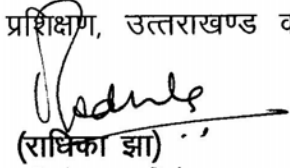 प्रशिक्षण, उत्तराखण्ड
(राधिका झा)